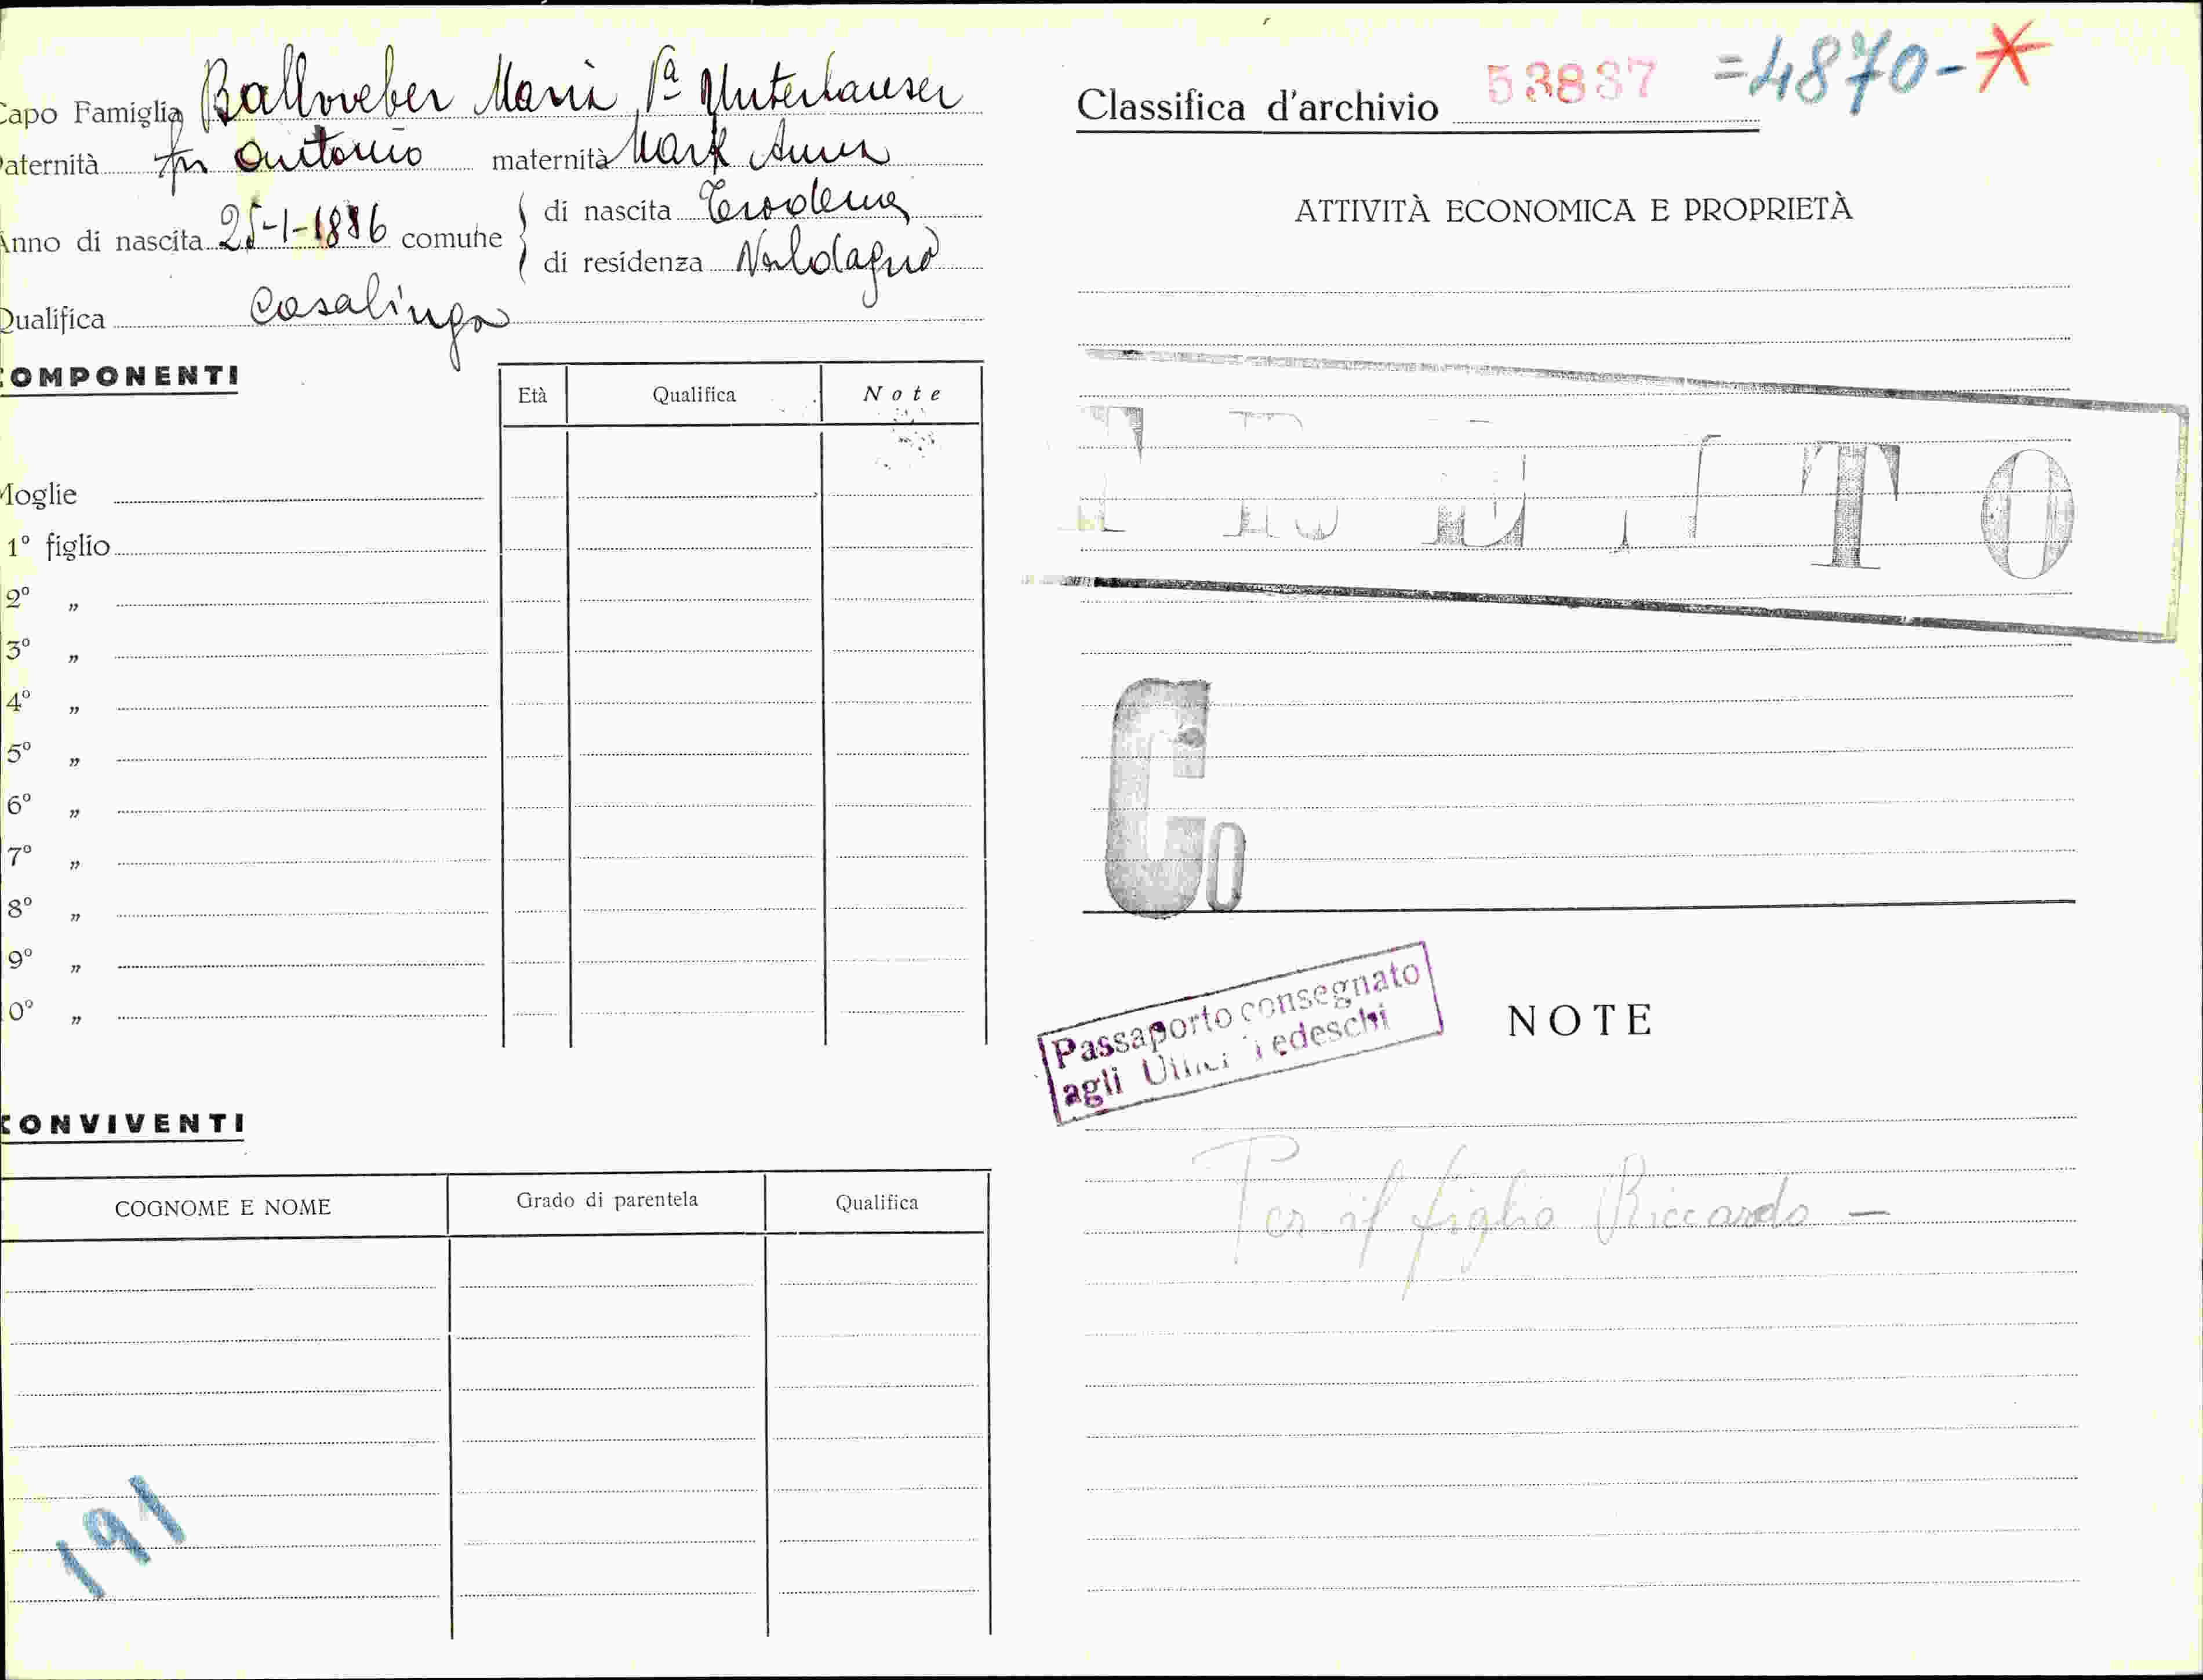 Capo Famiglia Ballweber Maria Va Unterhauser
Paternità fu Antonio maternità Mark Anna
Anno di nascita 25-1-1886 comune di nascita Terodena
di residenza Valdagno
Qualifica Casalinga
COMPONENTI
Età Qualifica Note
Moglie
1º figlio
2º „
3º „
4º „
5º „
6º „
7º „
8º „
9º „
0º „
CONVIVENTI
COGNOME E NOME Grado di parentela Qualifica
191
Classifica d'archivio 53837 =4870-*
ATTIVITÀ ECONOMICA E PROPRIETÀ
TO
Co
Passaporto consegnato
agli Uffici Tedeschi
NOTE
Per il figlio Riccardo —